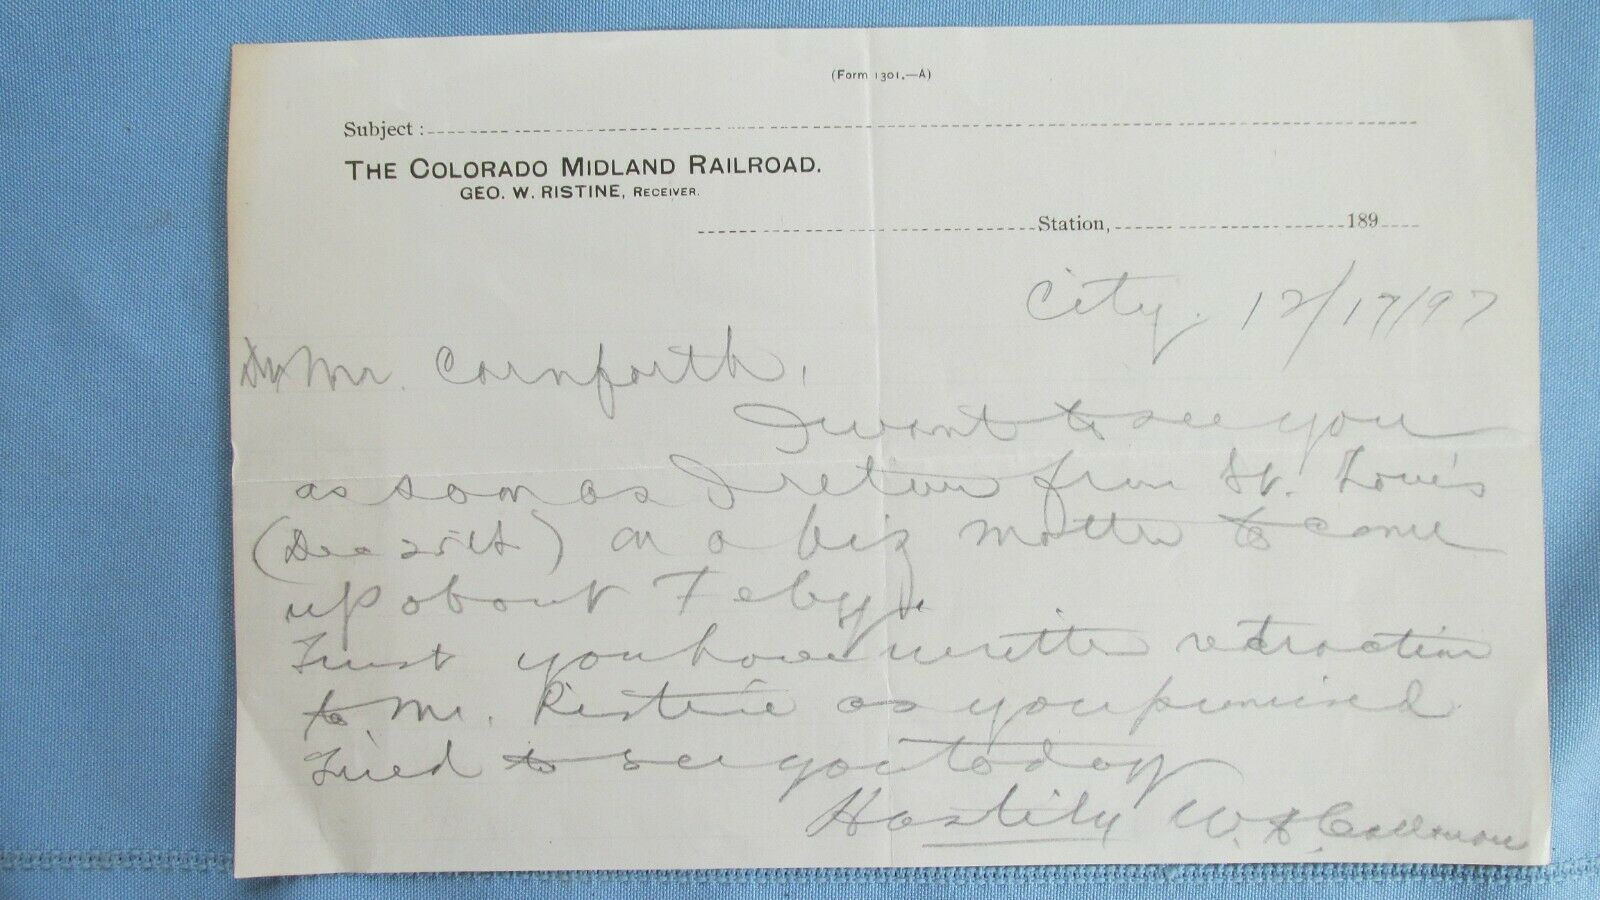 (Form 1301.—A)
Subject :
THE COLORADO MIDLAND RAILROAD.
GEO. W. RISTINE, RECEIVER.
Station, 189
City. 12/17/97
Mr. Cornforth,
I want to see you
as soon as I return from St. Louis
(Dec 25th) on a biz matter to come
up about Feby 1.
Trust you have written retraction
to Mr. Ristine as you promised
Tried to see you today
Hastily W.